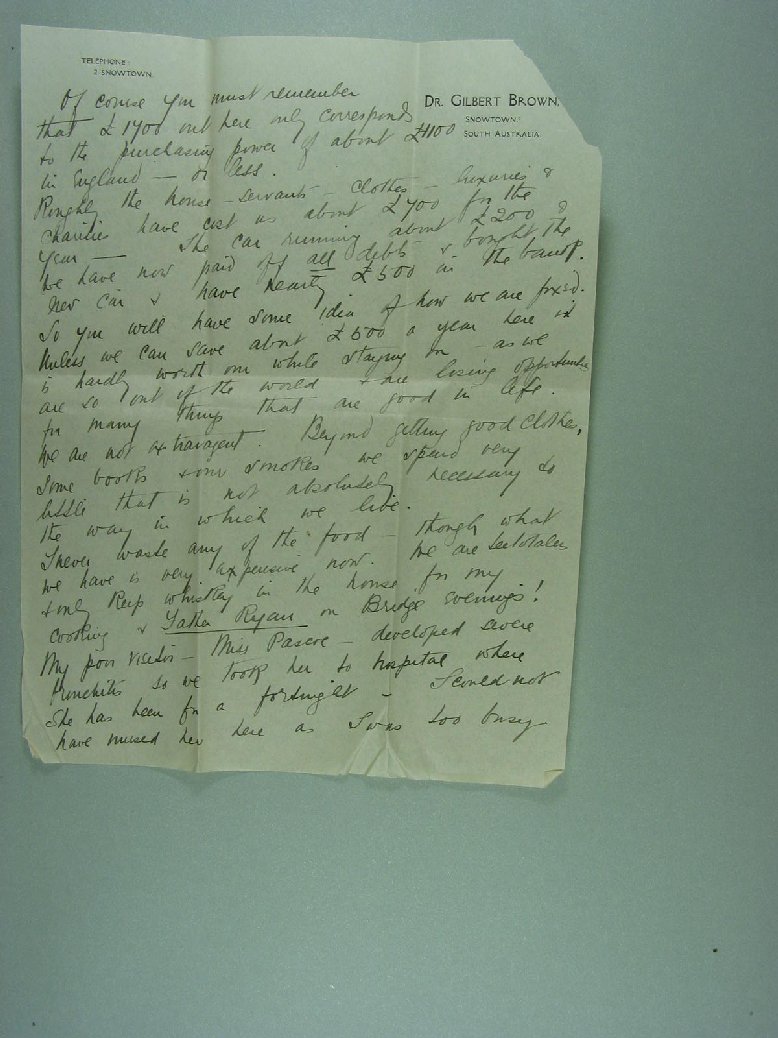 TELEPHONE:
2 SNOWTOWN.
DR. GILBERT BROWN,
SNOWTOWN,
SOUTH AUSTRALIA.
Of course you must remember
that £1700 out here only corresponds
to the purchasing power of about £1100
in England — or less.
Roughly the house - servants - clothes - luxuries &
charities have cost us about £700 for the
year — The car running about £200 &
we have now paid off all debts & bought the
new car & have nearly £500 in the bank.
So you will have some idea of how we are fixed.
Unless we can save about £500 a year here it
is hardly worth our while staying on - as we
are so out of the world & are losing opportunities
for many things that are good in life.
We are not extravagent. Beyond getting good clothes,
some books & our smokes we spend very
little that is not absolutely necessary to
the way in which we live.
I never waste any of the food - though what
we have is very expensive now. We are teetotalers
& only keep whiskey in the house for my
cooking & Father Ryan on Bridge evenings!
My poor visitor - Miss Pascoe - developed severe
bronchitis so we took her to hospital where
she has been for a fortnight - I could not
have nursed her here as I was too busy -